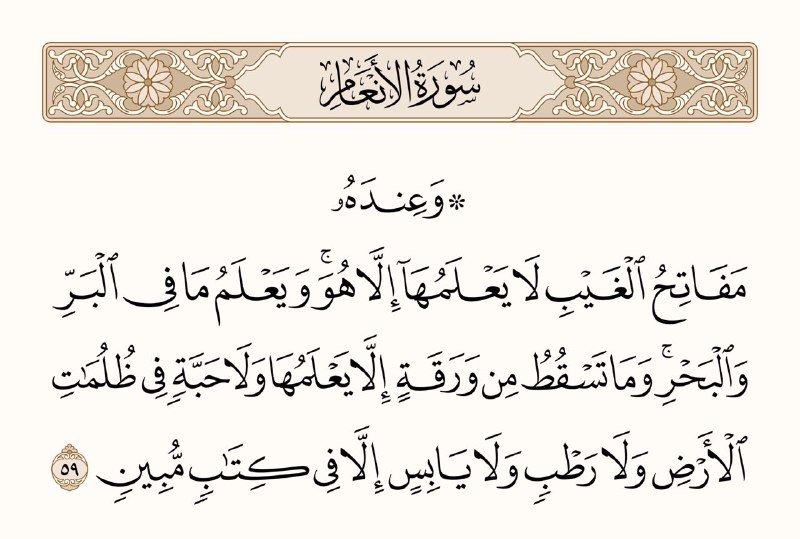 سُورَةُ الأَنْعَامِ
۞ وَعِندَهُۥ
مَفَاتِحُ ٱلْغَيْبِ لَا يَعْلَمُهَآ إِلَّا هُوَۚ وَيَعْلَمُ مَا فِى ٱلْبَرِّ
وَٱلْبَحْرِۚ وَمَا تَسْقُطُ مِن وَرَقَةٍ إِلَّا يَعْلَمُهَا وَلَا حَبَّةٍ فِى ظُلُمَٰتِ
ٱلْأَرْضِ وَلَا رَطْبٍ وَلَا يَابِسٍ إِلَّا فِى كِتَٰبٍ مُّبِينٍ ٥٩